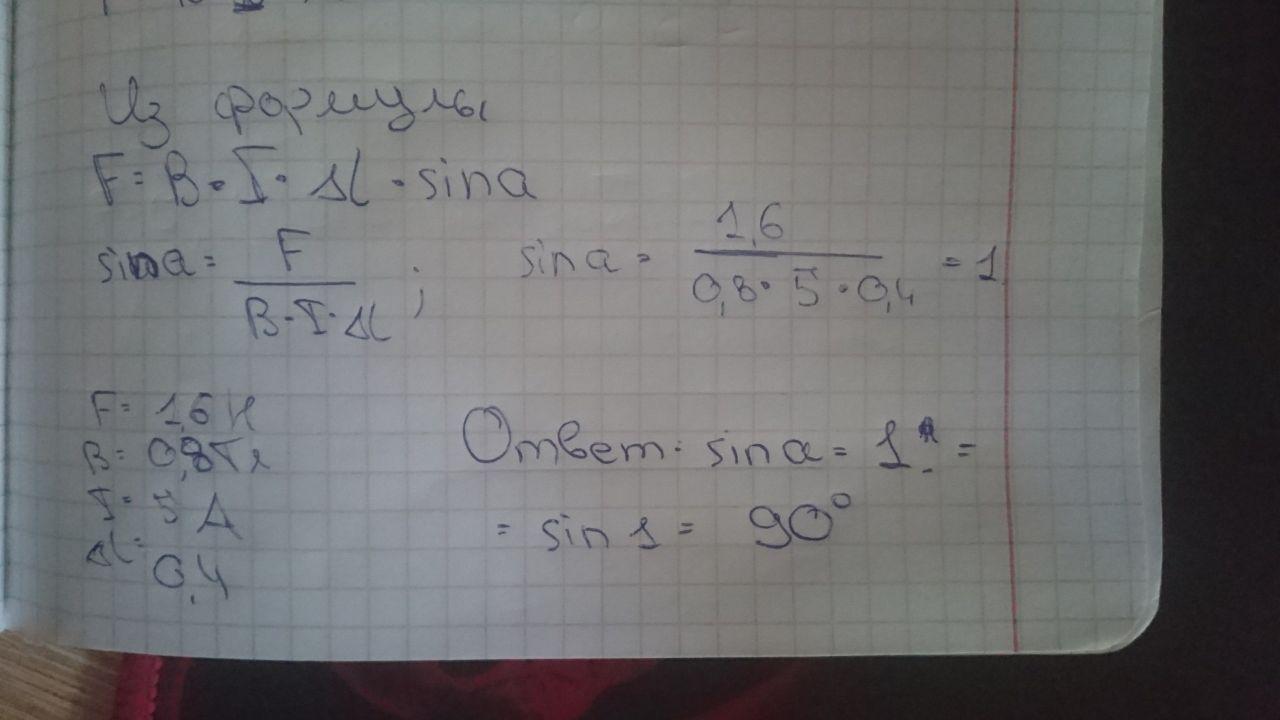 Из формулы
F = B · I · Δl · sina
sina = F / B · I · Δl ; sina = 1,6 / 0,8 · 5 · 0,4 = 1
F = 1,6 Н
B = 0,8 Тл
I = 5 А
Δl =
0,4
Ответ: sina = 1 =
= sin 1 = 90°